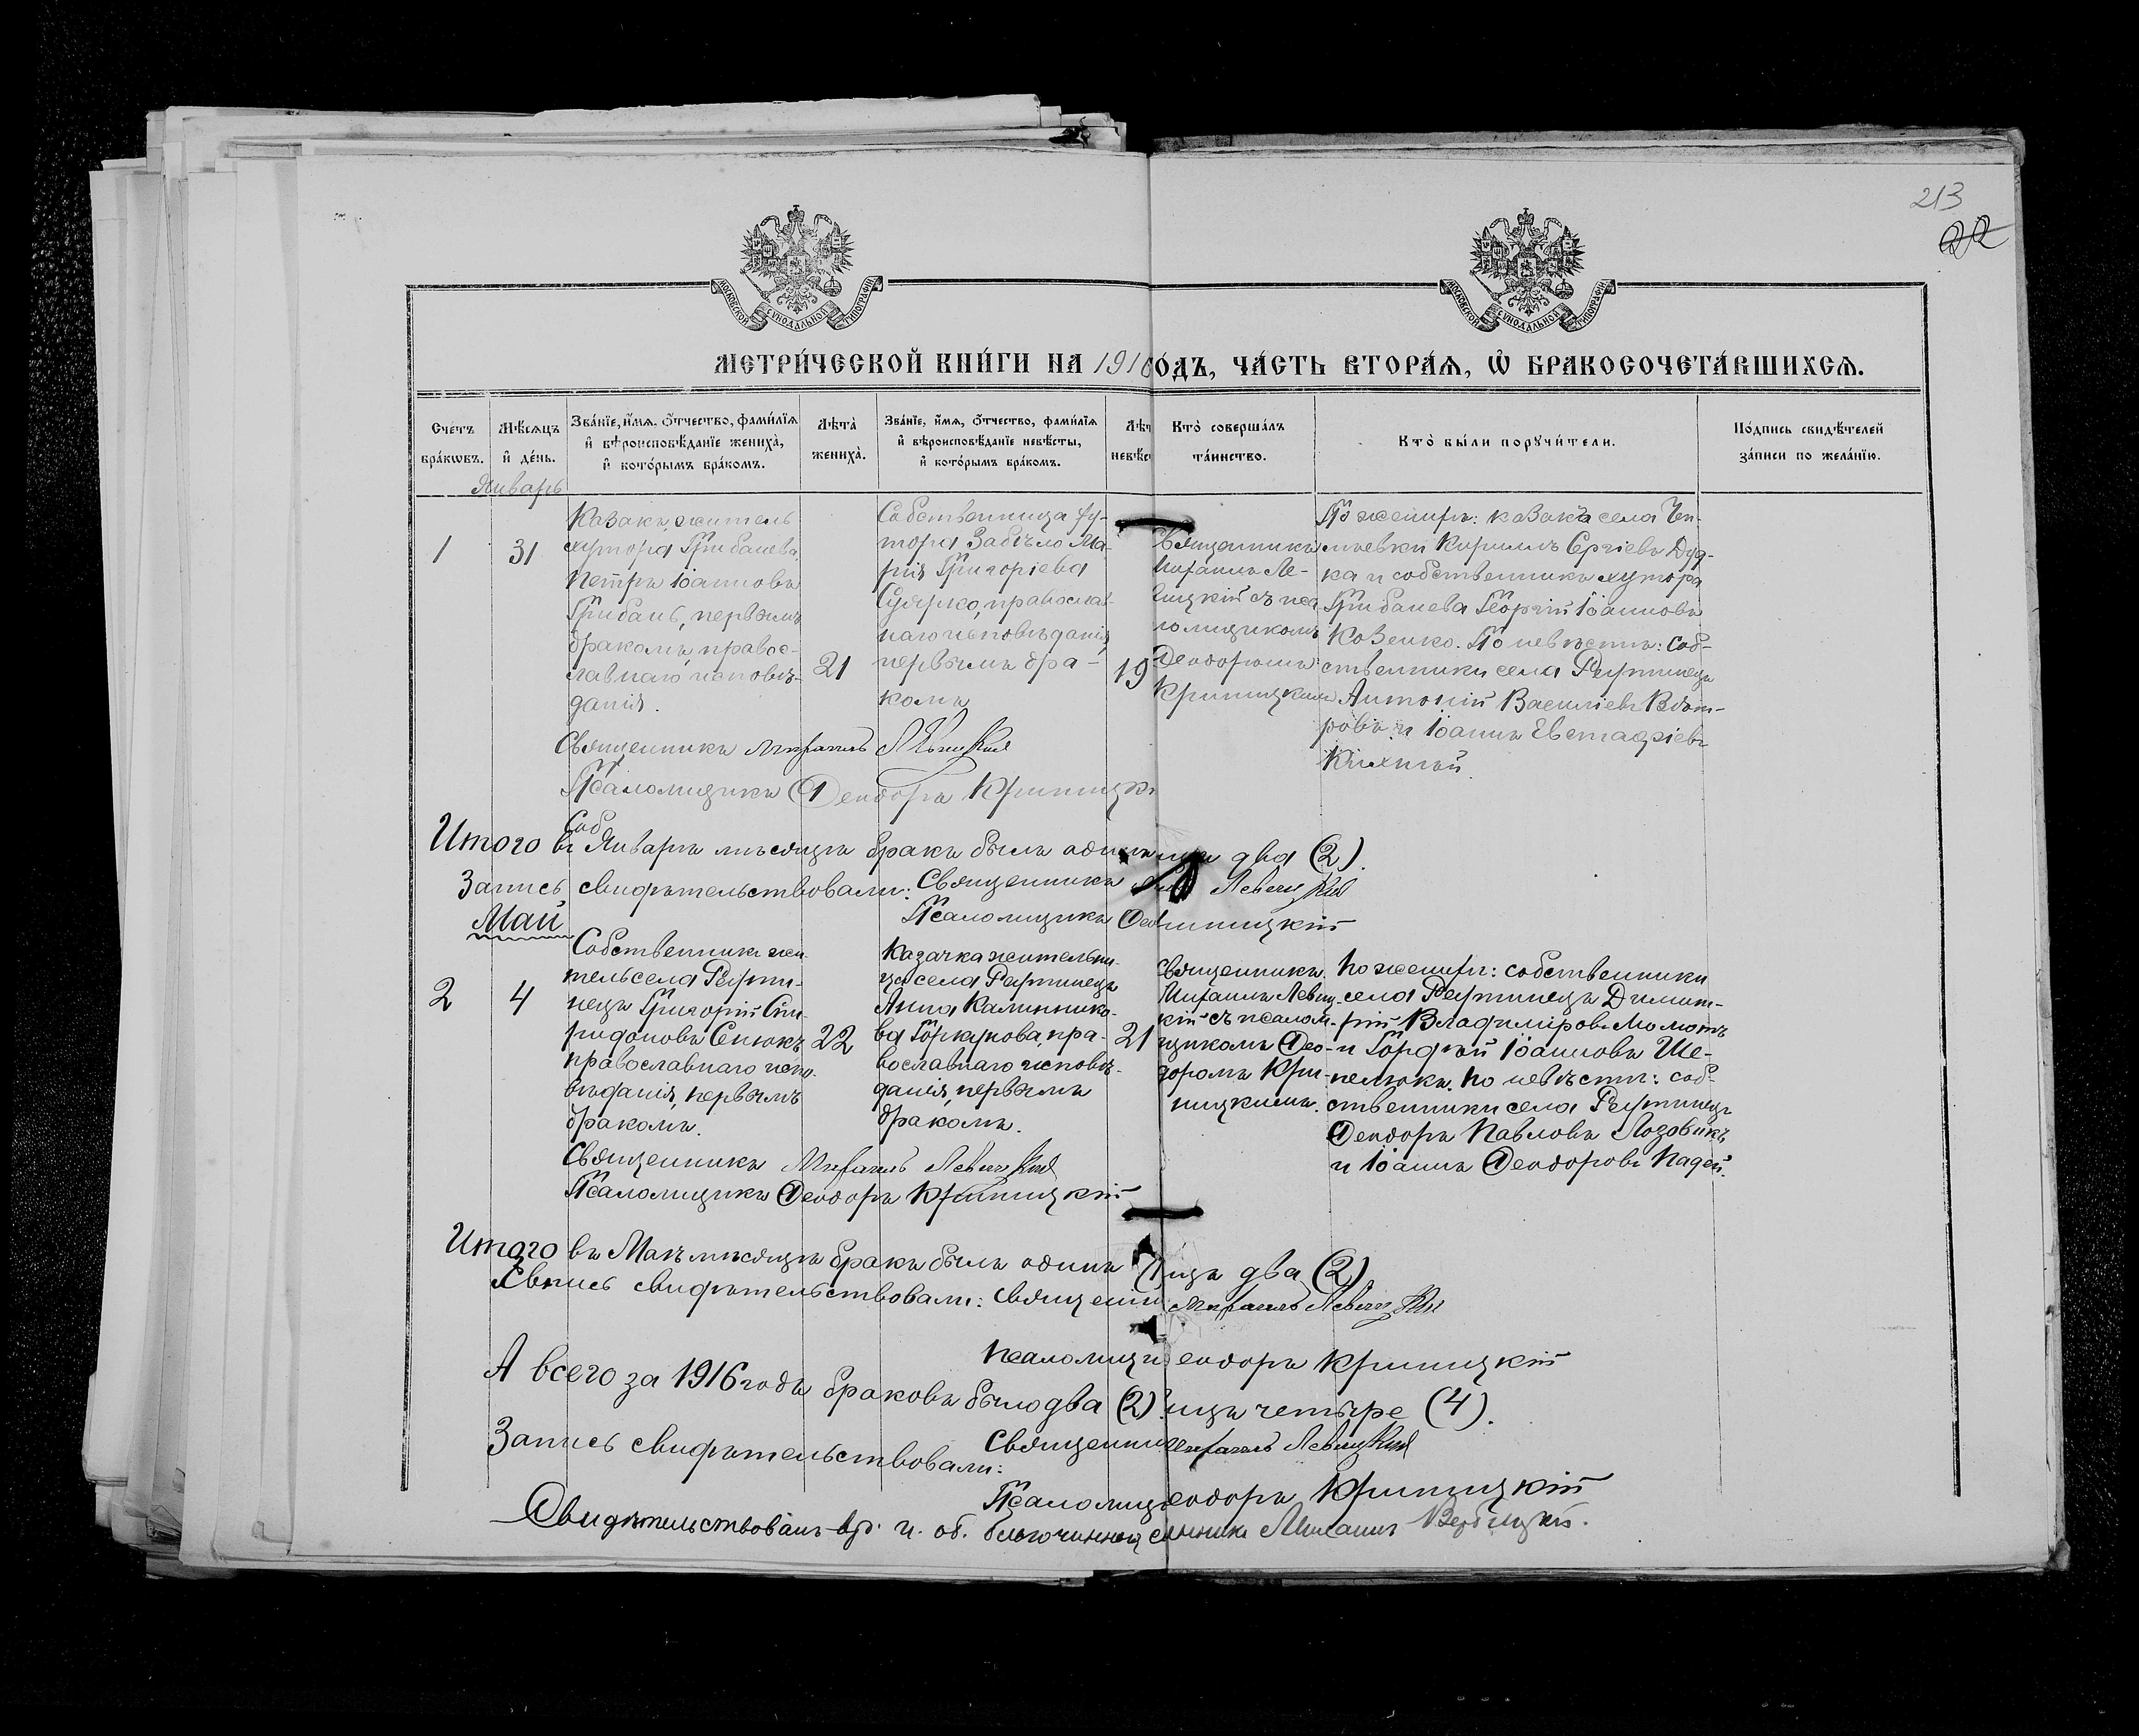 213
22
МОСКОВСКОЙ СУНОДАЛЬНОЙ ТИПОГРАФІИ
МОСКОВСКОЙ СУНОДАЛЬНОЙ ТИПОГРАФІИ
МЕТРИ́ЧЕСКОЙ КНИ́ГИ НА 1916 ГО́ДЪ, ЧА́СТЬ ВТОРА́Я, Ѡ҆ БРАКОСОЧЕТА́ВШИХСѦ.
Сче́тъ бра́кѡвъ.
Мѣ́сяцъ и҆ де́нь.
Зва́нїе, и҆́мя, ѻ҆́тчество, фами́лїя и҆ вѣроисповѣ́данїе жениха̀, и҆ кото́рымъ бра́комъ.
Лѣта̀ жениха̀.
Зва́нїе, и҆́мя, ѻ҆́тчество, фами́лїя и҆ вѣроисповѣ́данїе невѣ́сты, и҆ кото́рымъ бра́комъ.
Лѣт
невѣс
Кто̀ соверша́лъ та́инство.
Кто̀ бы́ли порꙋчи́тели.
По́дпись свидѣ́телей за́писи по жела́нїю.
Январь
1
31
Казакъ, житель
хутора Грибанева,
Петръ Іоанновъ
Грибань, первымъ
бракомъ, правос-
лавнаго исповѣ-
данія.
21
Собственница ху-
тора Забѣло Ма-
рія Григоріева
православ-
наго исповѣданія,
первымъ бра-
комъ
19
Священникъ
Михаилъ Ле-
вицкій съ пса
ломщикомъ
Ѳеодоромъ
Криницкимъ
По женихѣ: казакъ села Чеп-
лѣевки Кириллъ Сергіевъ Дуд-
ка и собственникъ хутора
Грибанева Георгій Іоанновъ
Козенко. По невѣстѣ: соб-
ственники села Рѣутинецъ
Антоній Василіевъ
и Іоаннъ Евстафіевъ
Священникъ Михаилъ Левицкій
Псаломщикъ Ѳеодоръ Криницкі
Итого въ Январѣ мѣсяцѣ бракъ былъ одинъ лицъ два (2).
Запись свидѣтельствовали: Священникъ Левицкій
Псаломщикъ Ѳео Криницкій
Май
2
4
Собственникъ жи-
тель села Рѣути-
нецъ Григорій Спи-
ридоновъ Сенюкъ
православнаго испо-
вѣданія, первымъ
бракомъ.
22
Казачка жительни-
ца села Рѣутинецъ
Анна Калинико-
ва Горкунова, пра-
вославнаго исповѣ-
данія, первымъ
бракомъ.
21
Священникъ
Михаилъ Левиц-
кій съ псалом-
щикомъ Ѳео-
доромъ Кри-
ницкимъ.
По женихѣ: собственники
села Рѣутинецъ Димит-
рій Владиміровъ Момотъ
и Гордѣй Іоанновъ Ше-
пелюкъ. По невѣстѣ: соб-
ственники села Рѣутинецъ
Ѳеодоръ Павловъ Лозовикъ
и Іоаннъ Ѳеодоровъ Падей.
Священникъ Михаилъ Левицкій
Псаломщикъ Ѳеодоръ Криницкій
Итого въ Маѣ мѣсяцѣ бракъ былъ одинъ лицъ два (2)
Запись свидѣтельствовали: Священни Михаилъ Левицкій
Псаломщи еодоръ Криницкій
А всего за 1916 годъ браковъ было два (2) лицъ четыре (4).
Запись свидѣтельствовали: Священни Михаилъ Левицкій
Псаломщ еодоръ Криницкій
Свидѣтельствовалъ вр. и. об. благочиннаго священникъ Михаилъ Вербицкій.